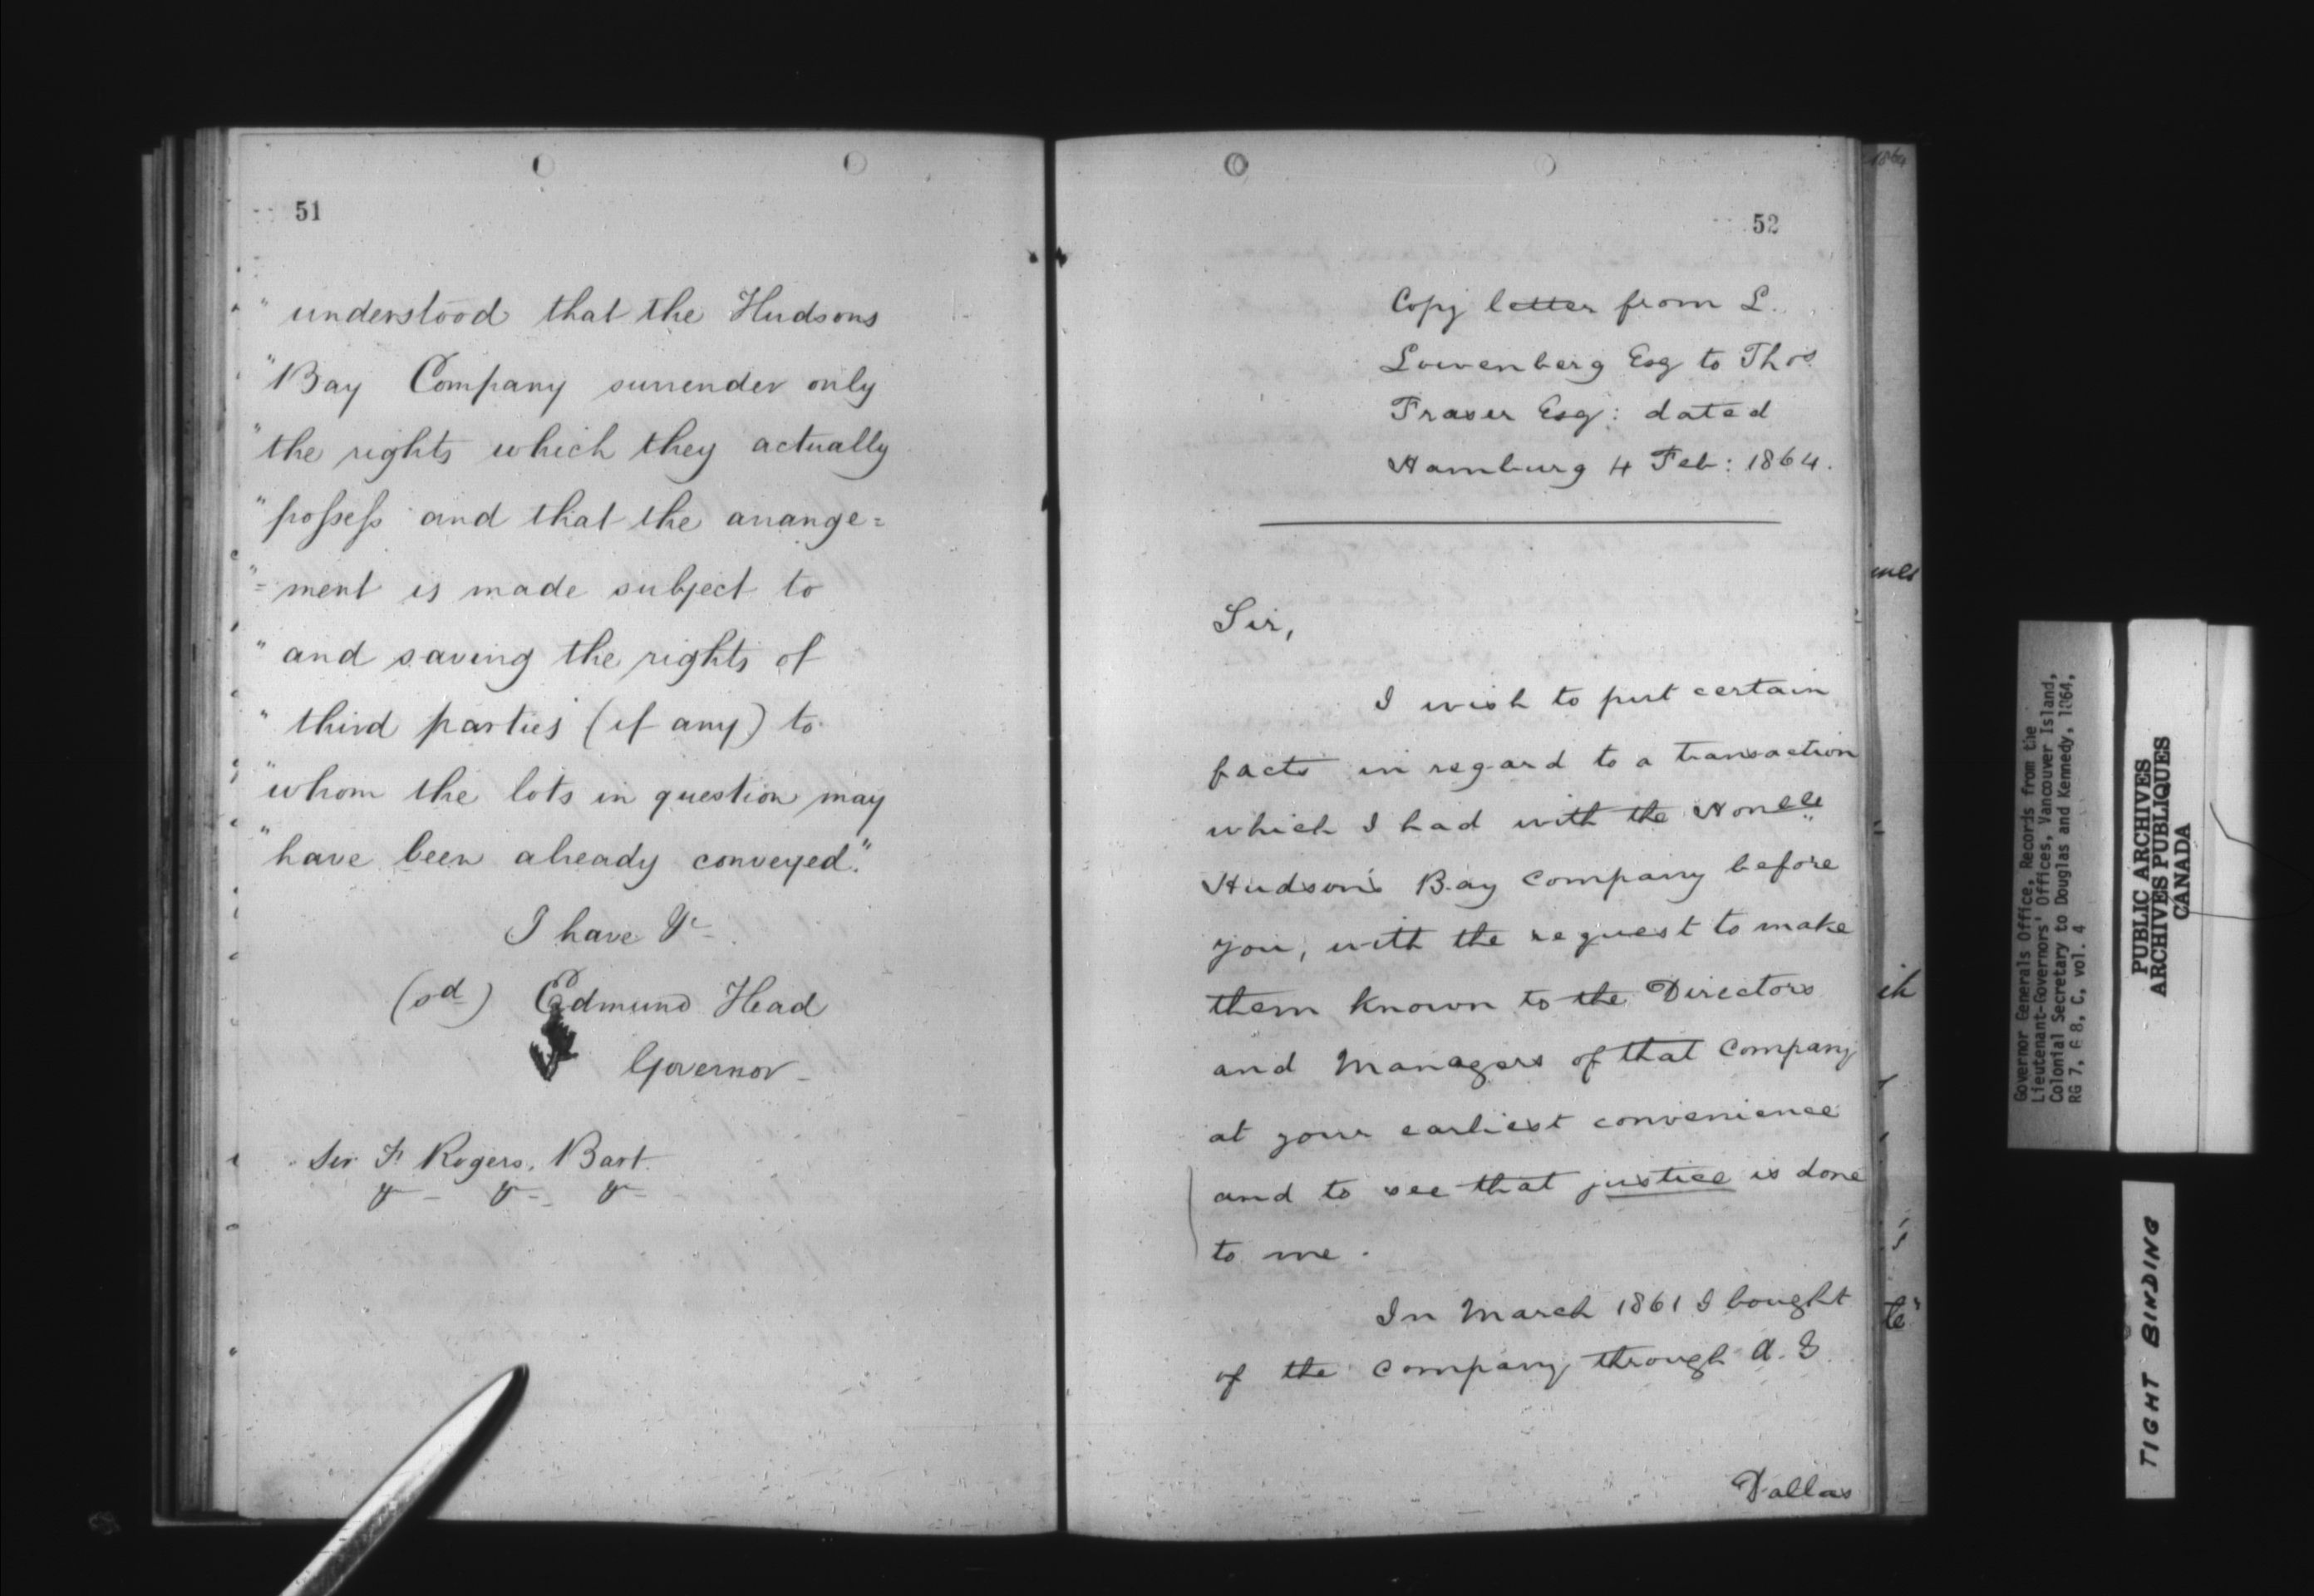 51
" understood that the Hudsons
" Bay Company surrender only
" the rights which they actually
" possess and that the arrange=
"=ment is made subject to
" and saving the rights of
" third parties (if any) to
" whom the lots in question may
" have been already conveyed."
I have &c
(sd) Edmund Head
Governor
Sir F. Rogers. Bart.
&c &c &c
52
Copy letter from L.
Lowenberg Esq to Thos
Fraser Esq: dated
Hamburg 4 Feb: 1864.
Sir,
I wish to put certain
facts in regard to a transaction
which I had with the Honble
Hudson's Bay Company before
you, with the request to make
them known to the Directors
and Managers of that Company
at your earliest convenience
and to see that justice is done
to me.
In March 1861 I bought
of the Company through A. G.
Dallas
1864
Governor Generals Office, Records from the
Lieutenant-Governors' Offices, Vancouver Island,
Colonial Secretary to Douglas and Kennedy, 1864,
RG 7, G 8, C, vol. 4
PUBLIC ARCHIVES
ARCHIVES PUBLIQUES
CANADA
TIGHT BINDING